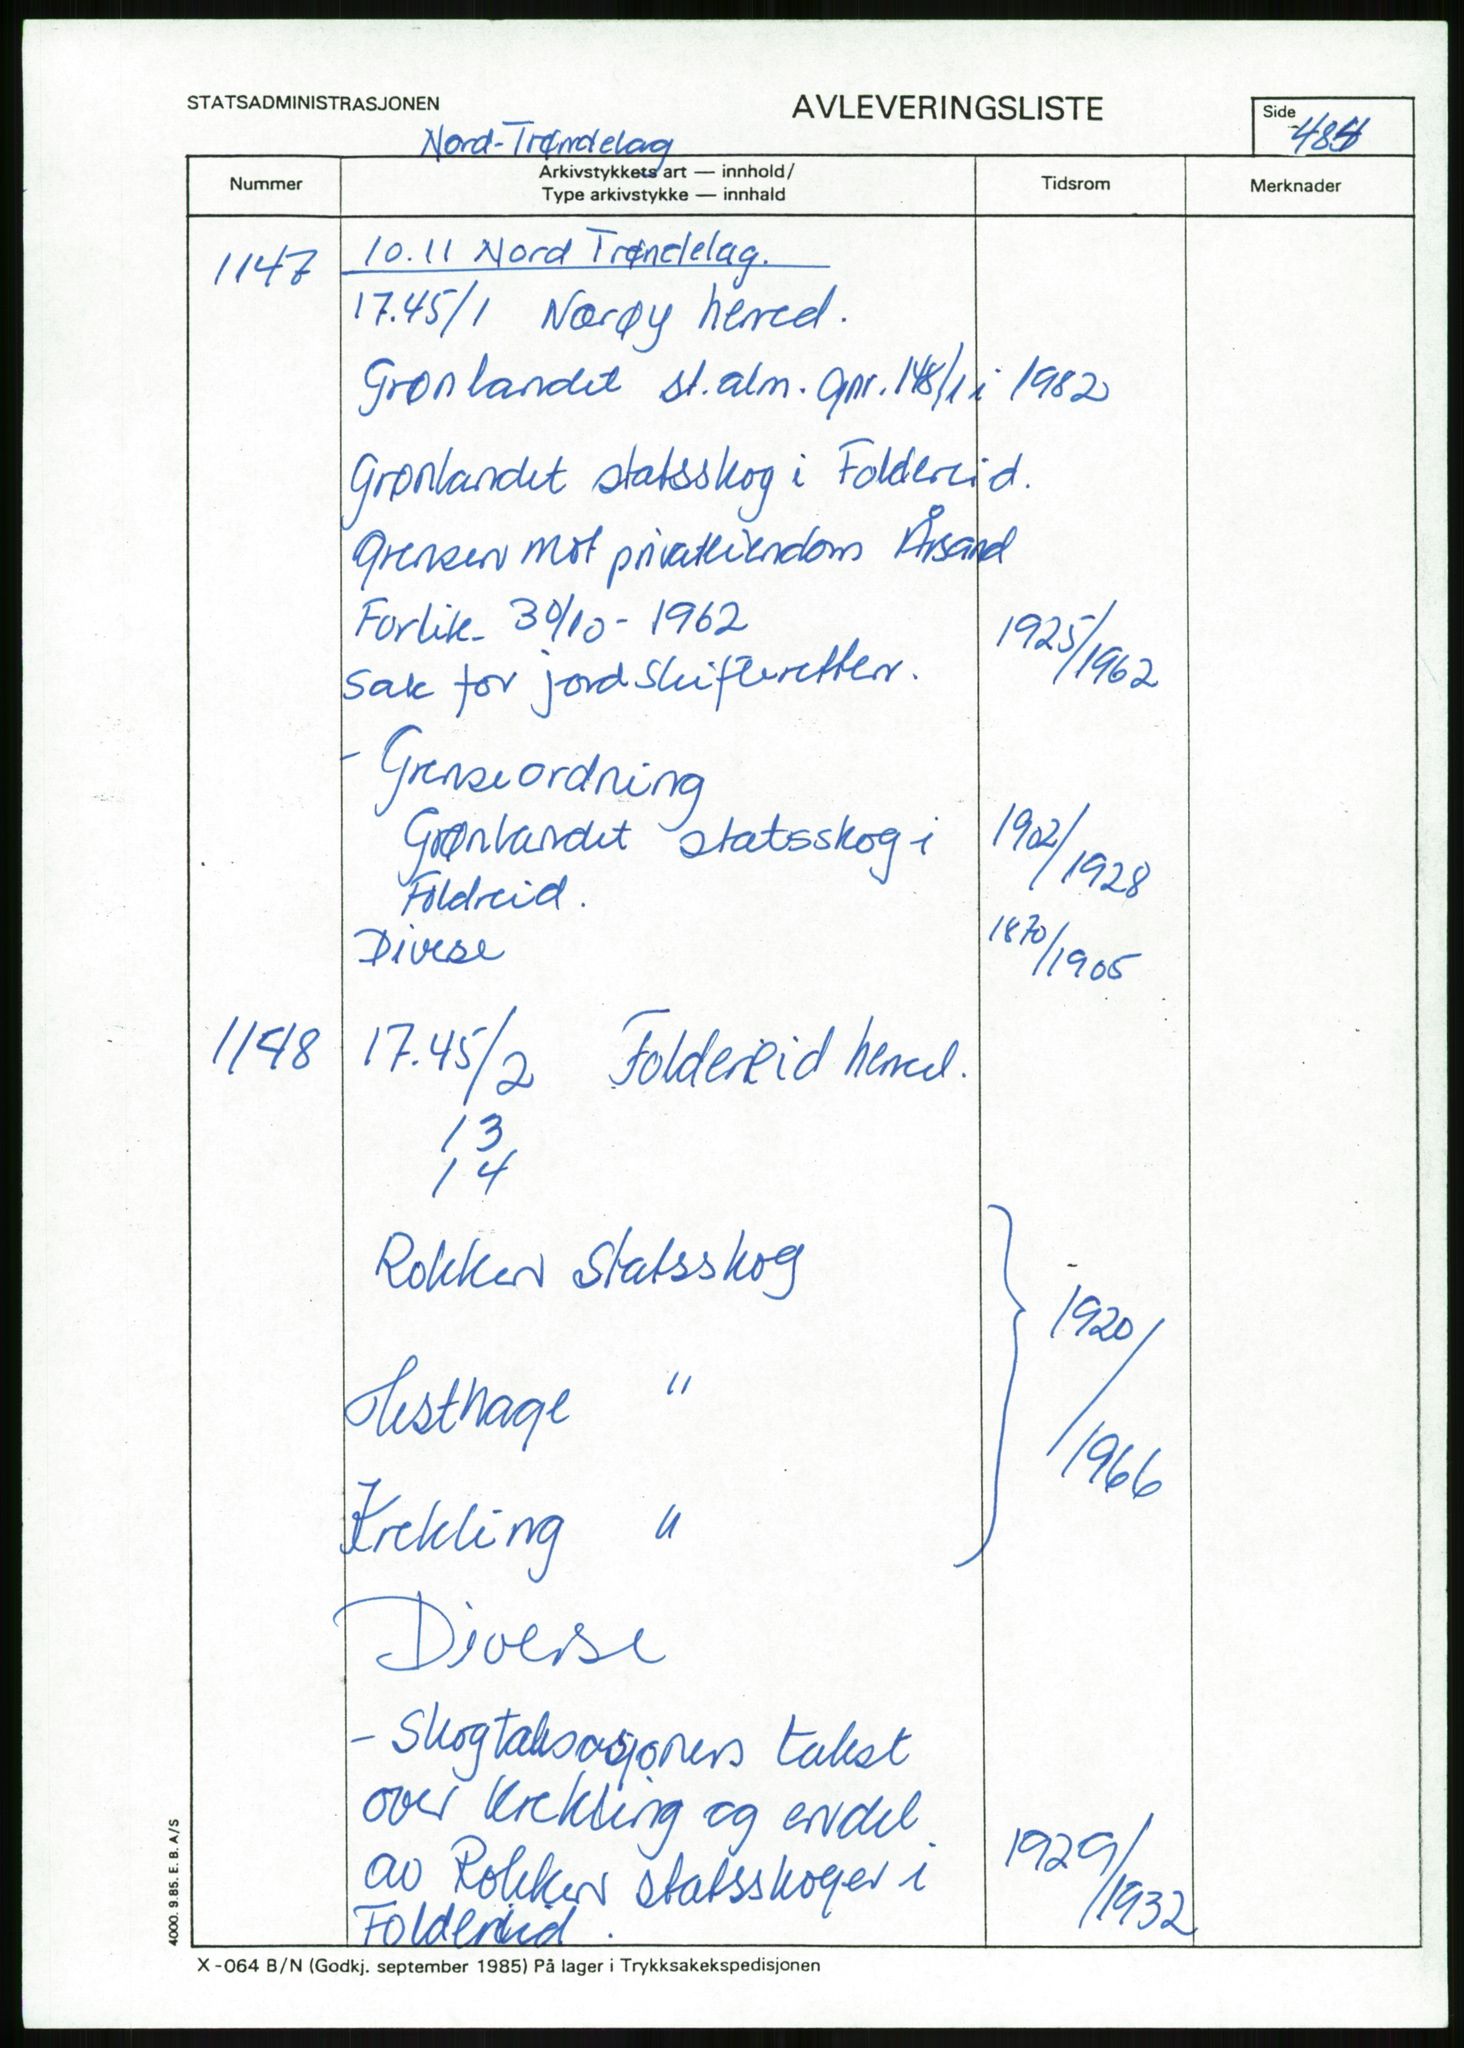 STATSADMINISTRASJONEN
AVLEVERINGSLISTE
Side
Nord-Trøndelag
Nummer
Arkivstykkets art — innhold/
Type arkivstykke — innhald
Tidsrom
Merknader
1147 10.11 Nord Trøndelag.
17.45/1 Nærøy herred.
Grønlandet st.alm. gnr. 148/1 i 1982
Grønlandet statsskog i Foldereid.
Grensen mot privateiendom Årsand
Forlik - 30/10 - 1962
Sak for jordskifteretten. 1925/1962
- Grenseordning
Grønlandet statsskog i 1902/1928
Foldreid.
Diverse 1870/1905
1148 17.45/2 Foldereid herred.
/3
/4
Rokken Statsskog
1920/1966
Hesthage "
Krekling "
Diverse
- Skogtaksasjonens takst
over Krekling og endel
av Rokken statsskoger i 1929/1932
Foldereid.
4000. 9.85. E. B. A/S
X-064 B/N (Godkj. september 1985) På lager i Trykksakekspedisjonen